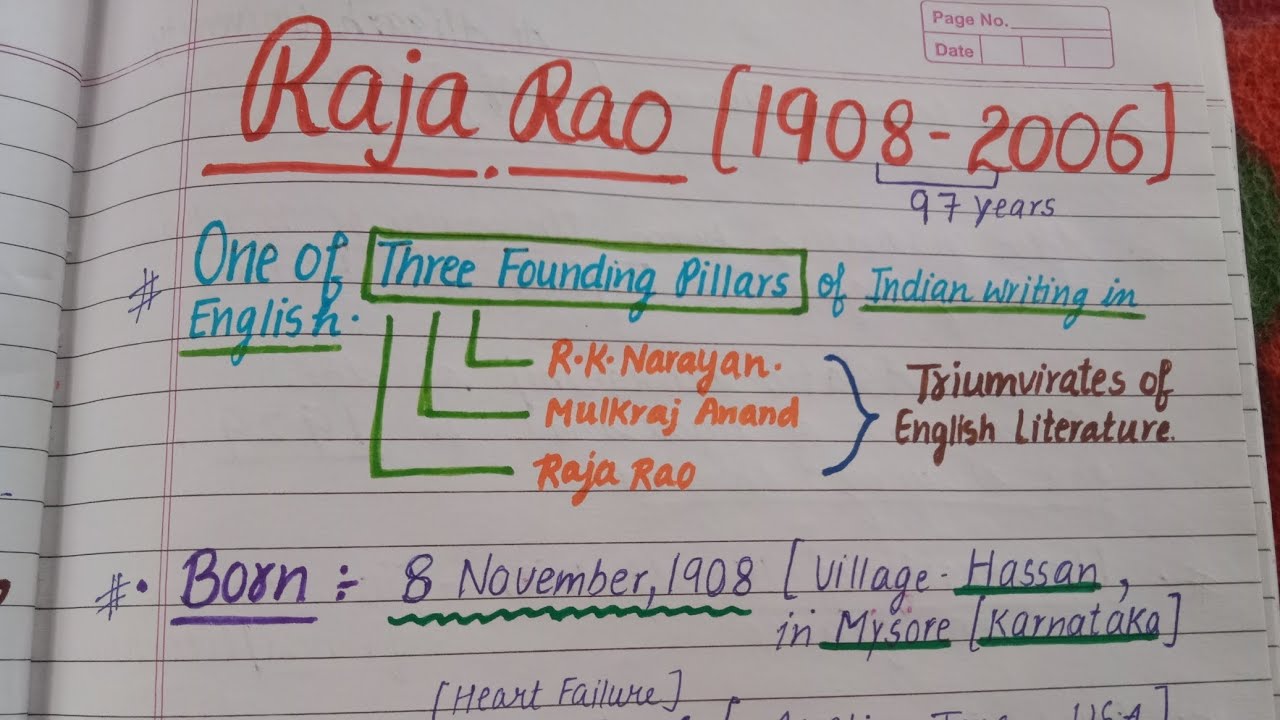 Page No.
Date
Raja Rao [1908-2006]
97 years
# One of Three Founding Pillars of Indian writing in
English.
R.K. Narayan.
Mulkraj Anand
Raja Rao
Triumvirates of
English Literature.
#. Born :- 8 November, 1908 [Village - Hassan,
in Mysore [Karnataka]
[Heart Failure]
U.S.A]